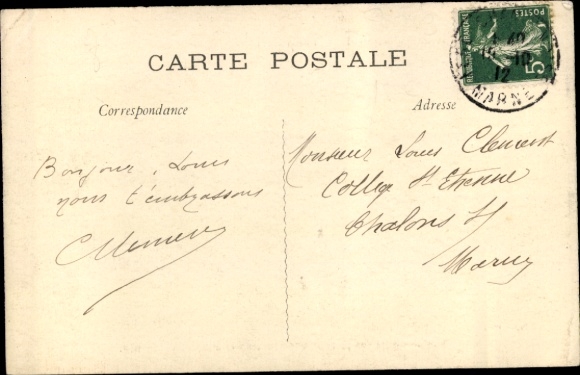 CARTE POSTALE
Correspondance
Adresse
POSTES
REPUBLIQUE FRANÇAISE
5
12
MARNE
Bonjour, Louis
nous t'embrassons
Clement
Monsieur Louis Clement
College St Etienne
Chalons s/
Marne